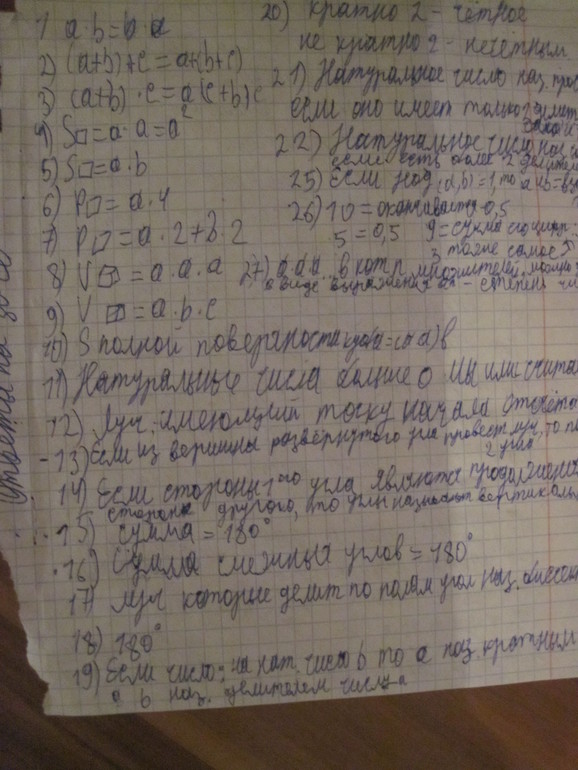 1 a·b=b a
2) (a+b)+c=a+(b+c)
3) (a+b)·c=a(c+b)c
4) S□=a·a=a²
5) S▱=a·b
6) P▱=a·4
7) P▱=a·2+b·2
8) V=a·a·a
9) V=a·b·c
10) S полной поверхности куба
11) Натуральные числа больше 0 мы или счита
12) Луч, имеющий точку начала отсчёта
13) Если из вершины развёрнутого угла провест луч, то по
2 угла
14) Если стороны 1-го угла являются продолжение
стороны другого, то углы называют вертикаль
15) сумма = 180°
16) Сумма смежных углов = 180°
17) Луч которые делит по полам угол наз. биссек
18) 180°
19) Если число : на нат. число b то a наз. кратным
а b наз. делителем числа a
20) кратно 2 - чётное
не кратно 2 - нечётным
21) Натуральное число наз. прос
если оно имеет только
22) Натуральное число
если есть более 2 делителе
25) Если НОД (a,b)=1, то a и b=вз
26) 10 = оканчивается 0,5
5=0,5 9=сумма
3 тоже самое
27) a·a·a... в котр. множителей
в виде выражения aⁿ - степень чи
Ответы на зачё